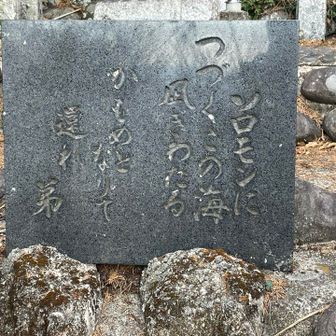 ソロモンに
つづくこの海
凪さわたる
かもめと
なりて
還れ
弟